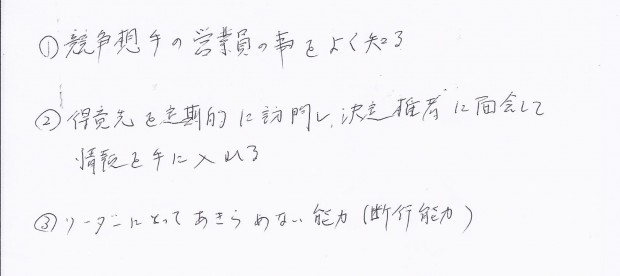 ①競争想手の営業員の事をよく知る
②得意先を定期的に訪問し、決定推者に面会して
情報を手に入れる
③リーダーにとってあきらめない能力(断行能力)